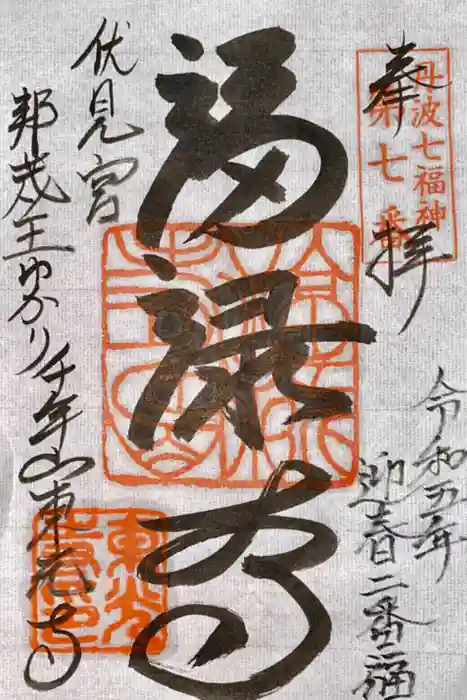 丹波七福神
第七番
奉拝
令和五年
迎春二番福
福禄寿
伏見宮
邦茂王ゆかり千年山東光寺